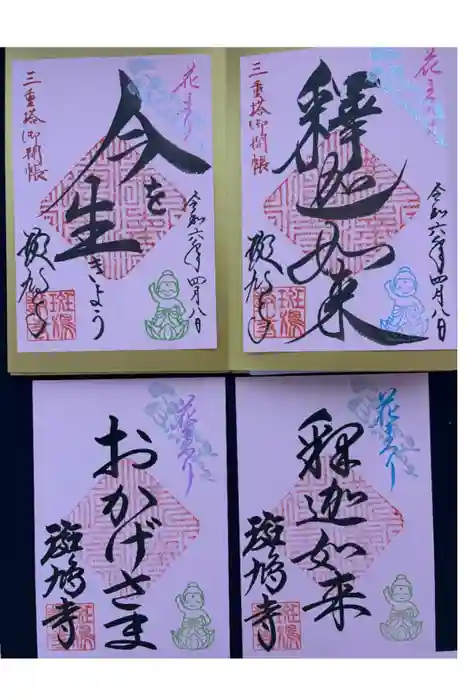 花まつり
釋迦如来
三重塔御開帳
令和六年四月八日
斑鳩寺
花まつり
今を
生きよう
三重塔御開帳
令和六年四月八日
斑鳩寺
花まつり
釋迦如来
斑鳩寺
花まつり
おかげさま
斑鳩寺